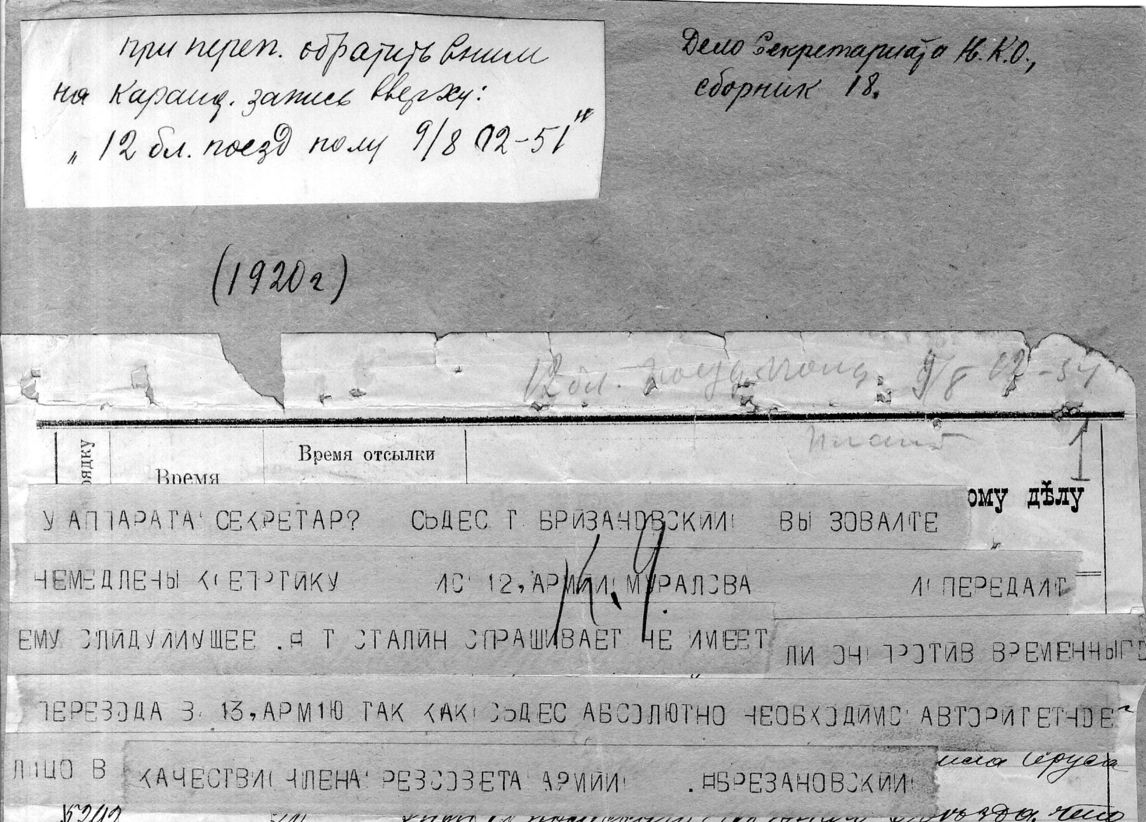 при переп. обратить вним
на каранд. запись вверху:
„12 бл. поезд полу 9/8 02-51"
Дело Секретариата Н.К.О.,
сборник 18.
(1920 г)
12 бл. поезд 9/8 02-51
рядку
Время
Время отсылки
1
ому дѣлу
У АППАРАТА СЕКРЕТАР? СЬДЕС Т. БРИЗАНОВСКИЙ ВЫ ЗОВАИТЕ
НЕМЕДЛЕНЫ К 12, АРМИИ МУРАЛОВА И ПЕРЕДАИТ
ЕМУ СЛИДУИЩУЩЕЕ . Я Т СТАЛИН СПРАШИВАЕТ НЕ ИМЕЕТ ЛИ ОН ПРОТИВ ВРЕМЕННЫГО
К. 9.
ПЕРЕВОДА В 13, АРМІЮ ТАК КАК СЬДЕС АБСОЛЮТНО НЕОБХОДИМО АВТОРИТЕТНОЕ
ЛИЦО В КАЧЕСТВИ ЧЛЕНА РЕВСОВЕТА АРМИИ . ЯБРЕЗАНОВСКИЙ